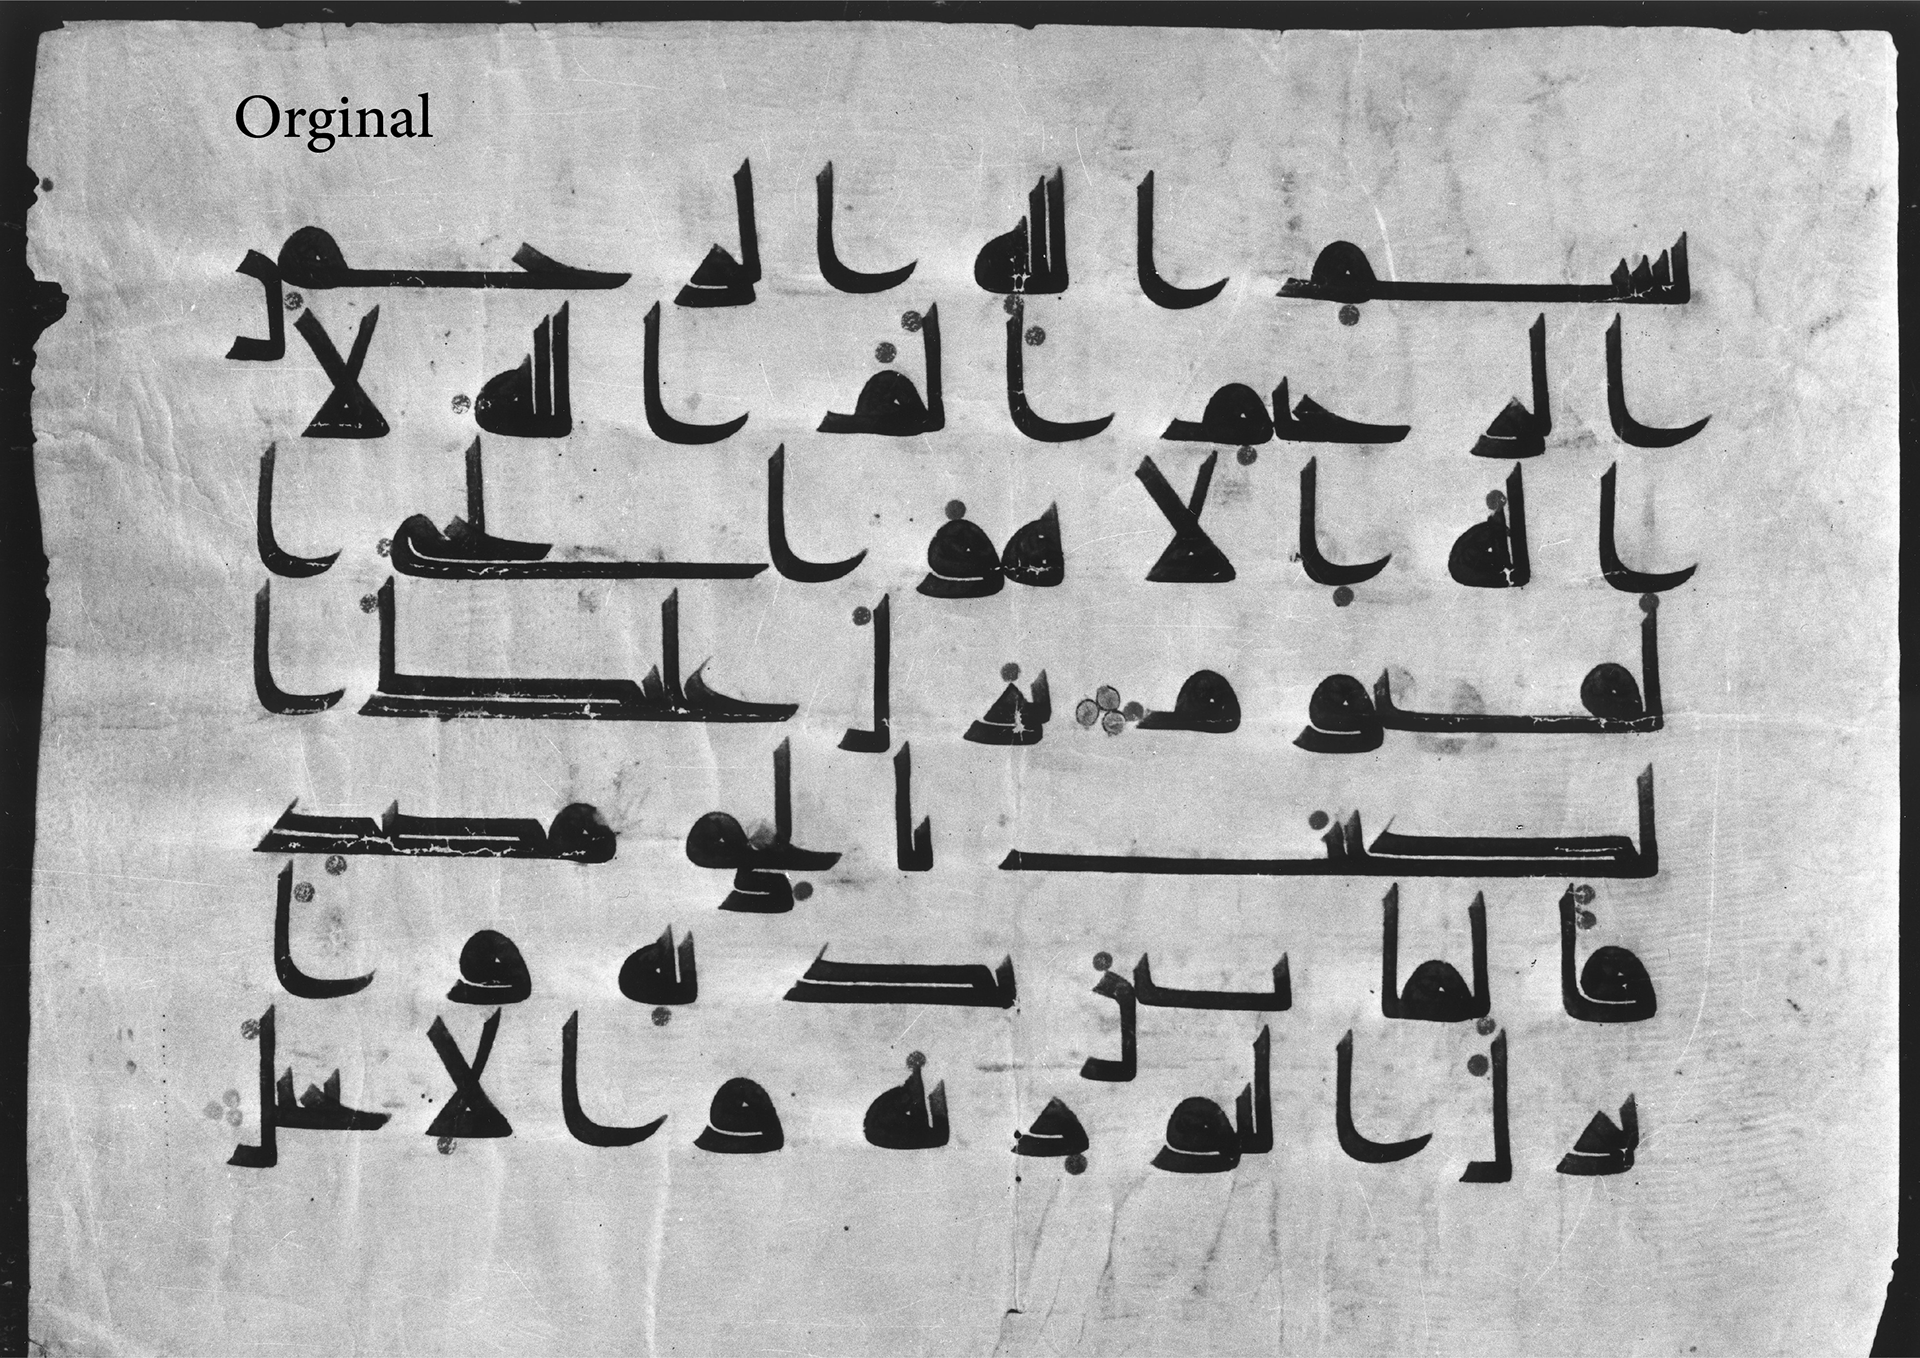 Orginal
بسم الله الرحمن
الرحيم الم الله لا
اله الا هو الحي ا
لقيوم نزل عليك ا
لكتب بالحق مصد
قا لما بين يديه وا
نزل التوريه والانجيل